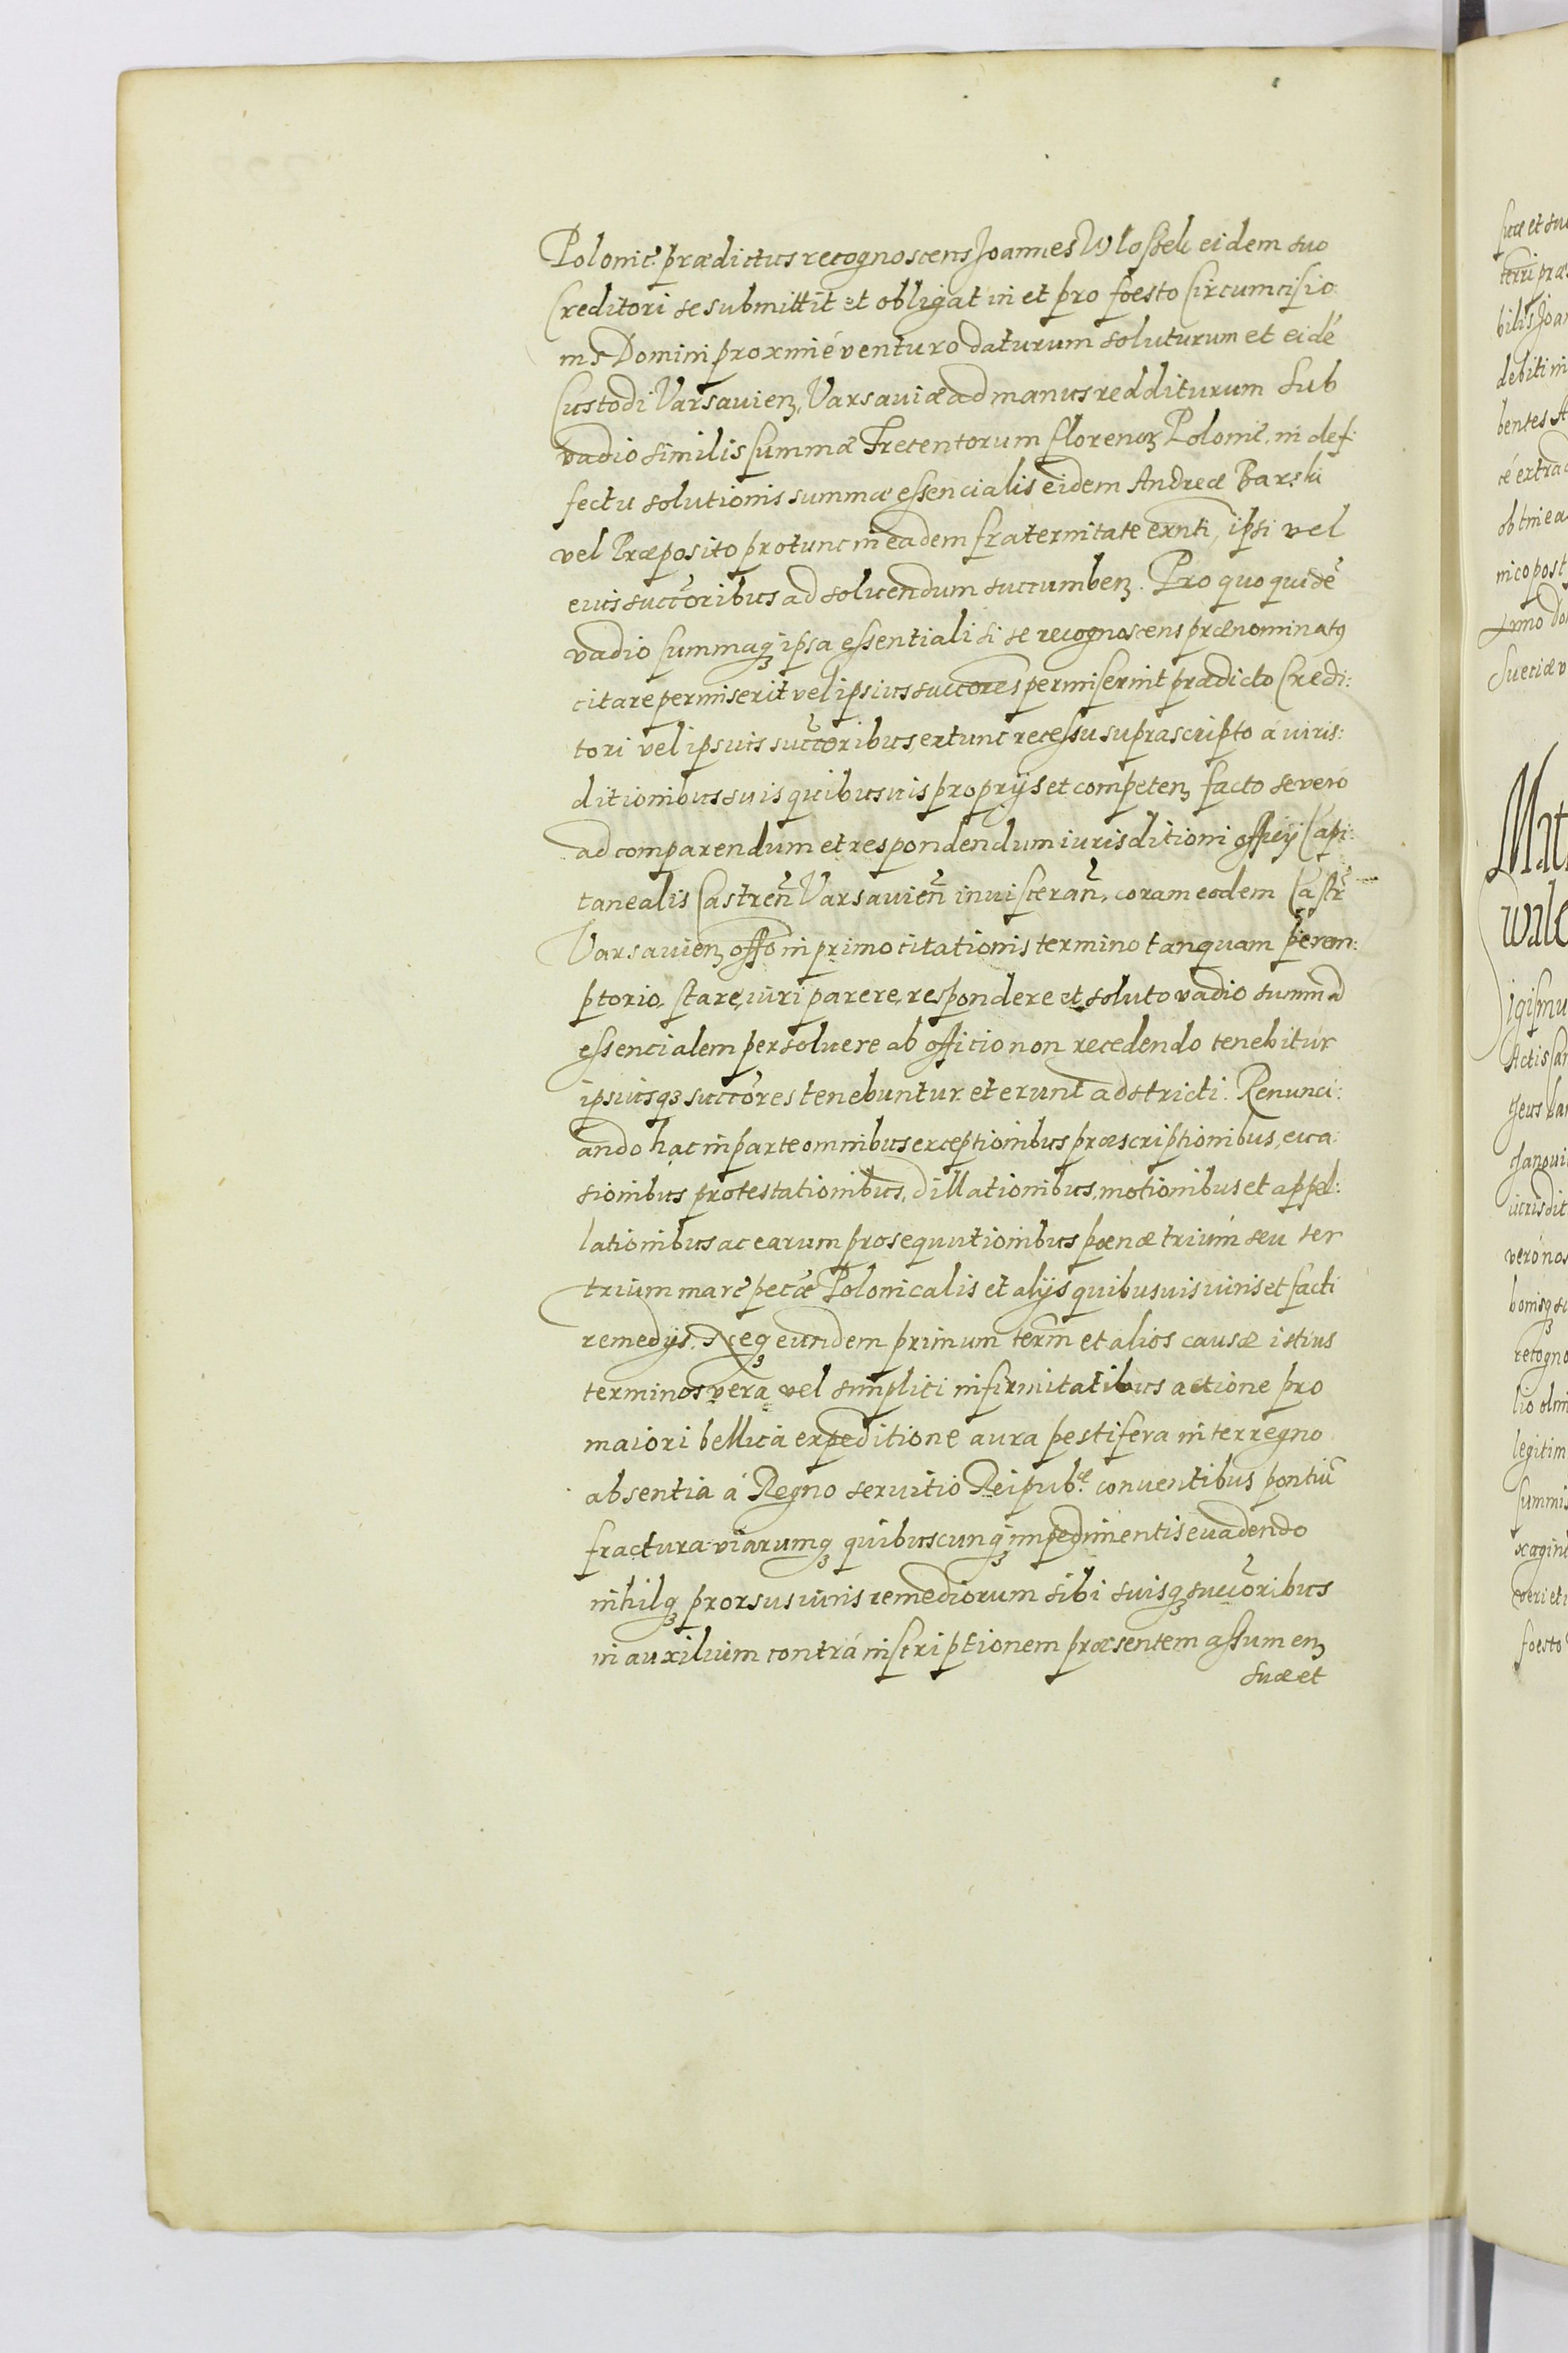 Polonic. prædictus recognoscens Joannes Wlossek eidem suo
Creditori se submittit et obligat in et pro foesto Circumcisio
nis Domini proximé venturo daturum soluturum et eidē
Custodi Varsavienꝫ, Varsaviæ ad manus redditurum sub
vadio similis summæ Trecentorum florenoꝝ Polonic̄. in def:
fectu solutionis summæ essencialis eidem Andreæ Barski
vel Præposito protunc in eadem fraternitate exnti, ipsi vel
eius succōribus ad solvendum succumbenꝫ. Pro quo quidē
vadio summaqꝫ ipsa essentiali si se recognoscens prænominatꝰ
citare permiserit vel ipsius succores permiserint prædicto Credi:
tori vel ipsuis succōribus, extunc recessu suprascripto á iuris:
ditionibus suis quibusvis proprijs et competenꝫ facto se veró
ad comparendum et respondendum iurisditioni officij Capi:
tanealis Castren̄ Varsavien̄ invisceran̄, coram eodem Castr̄
Varsavienꝫ offo in primo citationis termino tanquam perem:
ptorio, stare, iuri parere, respondere et soluto vadio summā
essencialem persolvere ab officio non recedendo tenebitur
ipsiusqꝫ succōres tenebuntur et erunt adstricti. Renunci:
ando hac in parte omnibus exceptionibus præscriptionibus, eva:
sionibus protestationibus, dillationibus, motionibus et appel:
lationibus ac earum prosequutionibus pœnæ trium seu ter
trium marc̄ pec̄æ Polonicalis et alijs quibusvis iuris et facti
remedijs. Neqꝫ eundem primum term̄ et alios causæ istius
terminos vera vel simplici infirmitatibus actione pro
maiori bellica expeditione aura pestifera interregno
absentia á Regno servitio Reipub.cæ conventibus pontiū
fractura viarumqꝫ quibuscunqꝫ impedimentis evadendo
nihilqꝫ prorsus iuris remediorum sibi suisqꝫ succōribus
in auxilium contrá inscriptionem præsentem assumenꝫ
suæ et